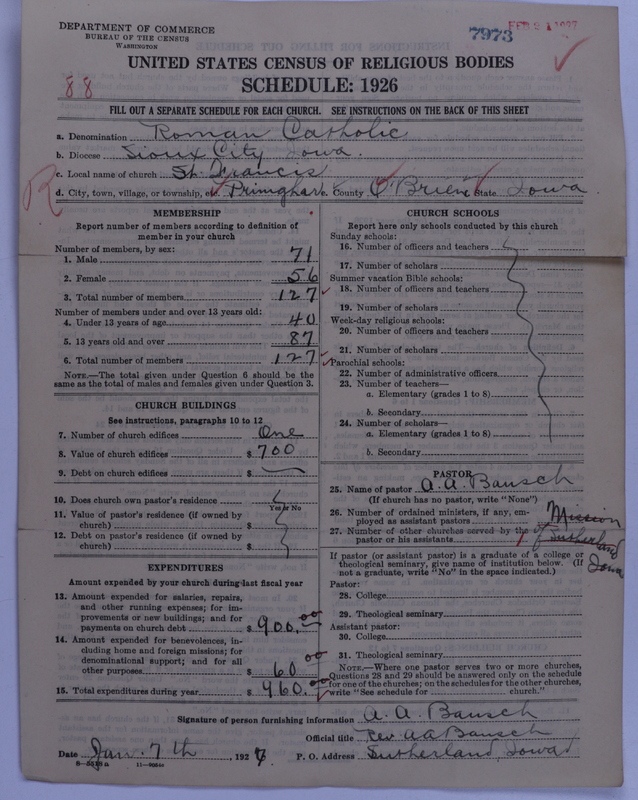 DEPARTMENT OF COMMERCE
BUREAU OF THE CENSUS
WASHINGTON
7973
FEB 21 1927
88
UNITED STATES CENSUS OF RELIGIOUS BODIES
SCHEDULE: 1926
FILL OUT A SEPARATE SCHEDULE FOR EACH CHURCH. SEE INSTRUCTIONS ON THE BACK OF THIS SHEET
a. Denomination Roman Catholic
b. Diocese Sioux City Iowa.
c. Local name of church St. Francis
R
d. City, town, village, or township, etc. Primghar e. County O'Brien State Iowa
MEMBERSHIP
Report number of members according to definition of
member in your church
Number of members, by sex:
1. Male 71
2. Female 56
3. Total number of members 127
Number of members under and over 13 years old:
4. Under 13 years of age 40
5. 13 years old and over 87
6. Total number of members 127
NOTE.—The total given under Question 6 should be the
same as the total of males and females given under Question 3.
CHURCH BUILDINGS
See instructions, paragraphs 10 to 12
7. Number of church edifices One
8. Value of church edifices $ 700
9. Debt on church edifices $
10. Does church own pastor's residence
Yes or No
11. Value of pastor's residence (if owned by
church) $
12. Debt on pastor's residence (if owned by
church) $
EXPENDITURES
Amount expended by your church during last fiscal year
13. Amount expended for salaries, repairs,
and other running expenses; for im-
provements or new buildings; and for
payments on church debt $ 900.00
14. Amount expended for benevolences, in-
cluding home and foreign missions; for
denominational support; and for all
other purposes $ 60.00
15. Total expenditures during year $ 960.00
CHURCH SCHOOLS
Report here only schools conducted by this church
Sunday schools:
16. Number of officers and teachers
17. Number of scholars
Summer vacation Bible schools:
18. Number of officers and teachers
19. Number of scholars
Week-day religious schools:
20. Number of officers and teachers
21. Number of scholars
Parochial schools:
22. Number of administrative officers
23. Number of teachers—
a. Elementary (grades 1 to 8)
b. Secondary
24. Number of scholars—
a. Elementary (grades 1 to 8)
b. Secondary
PASTOR
25. Name of pastor A. A. Bausch
(If church has no pastor, write "None")
26. Number of ordained ministers, if any, em-
ployed as assistant pastors Mission
27. Number of other churches served by the of
pastor or his assistants 1 Sutherland
Iowa
If pastor (or assistant pastor) is a graduate of a college or
theological seminary, give name of institution below. (If
not a graduate, write "No" in the space indicated.)
Pastor:
28. College
29. Theological seminary
Assistant pastor:
30. College
31. Theological seminary
NOTE.—Where one pastor serves two or more churches,
Questions 28 and 29 should be answered only on the schedule
for one of the churches; on the schedules for the other churches,
write "See schedule for church."
Signature of person furnishing information A. A. Bausch
Official title Rev AA Bausch
Date Jan. 7th, 1927 P. O. Address Sutherland, Iowa